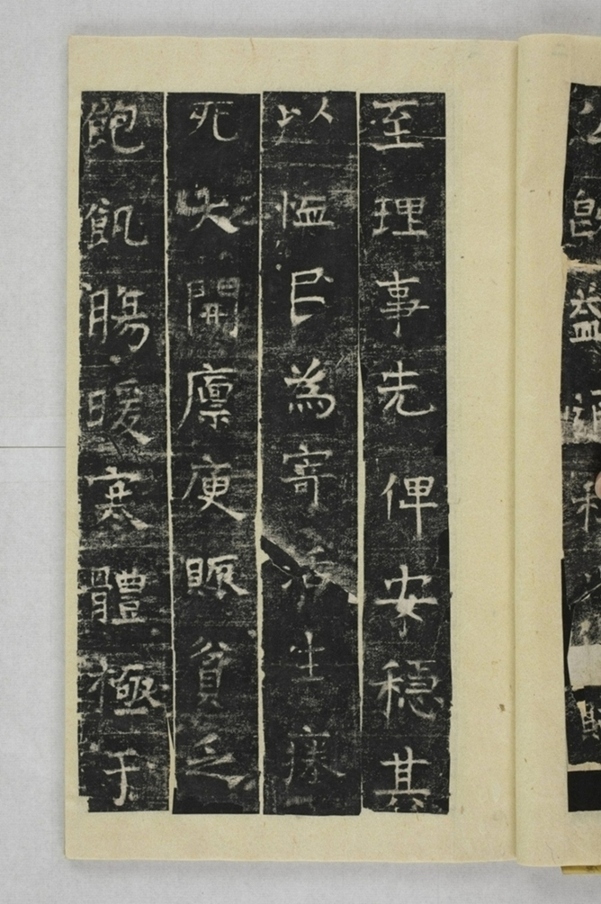 至理事先俾安穩其
以恤㠯為寄活生瘞
死大開廪庾賑貧乏
飽飢腸暖寒體極于